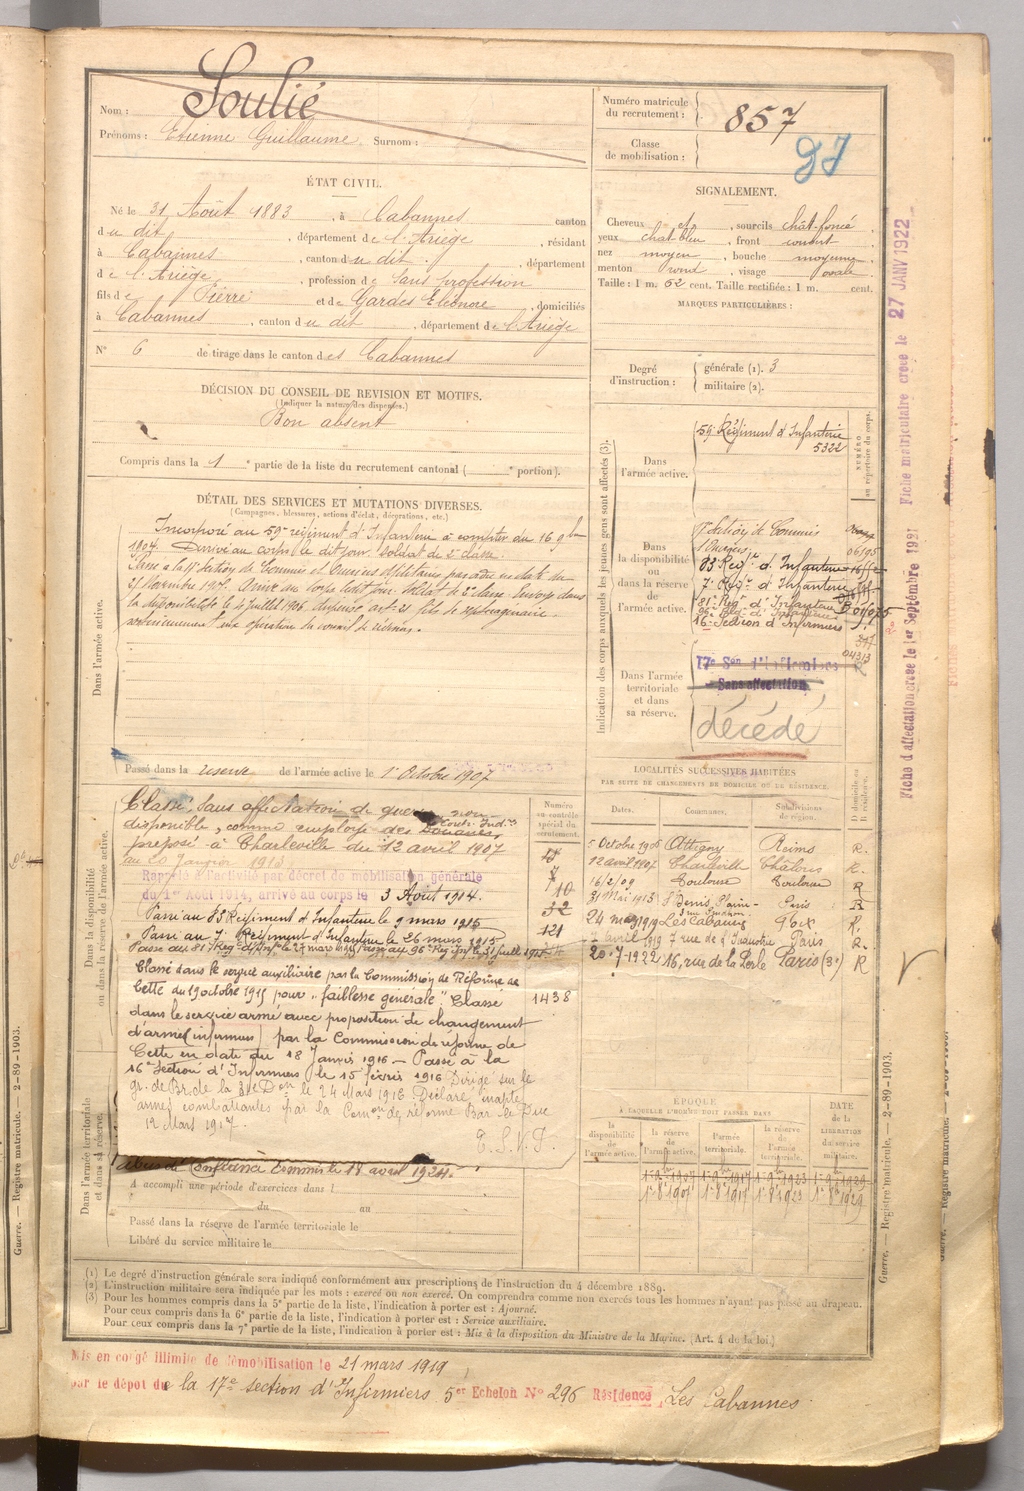 Nom : Soulié
Prénoms : Etienne Guillaume. Surnom :
Numéro matricule du recrutement : 857
Classe de mobilisation :
ÉTAT CIVIL.
Né le 31 Août 1883, à Cabannes canton
du dit, département de l'Ariège, résidant
à Cabannes, canton du dit, département
de l'Ariège, profession de Sans profession
fils de Pierre et de Gardes Eléonore, domiciliés
à Cabannes, canton du dit, département de l'Ariège
N° 6 de tirage dans le canton des Cabannes
SIGNALEMENT.
Cheveux et, sourcils chât. foncé,
yeux chat bleu, front couvert,
nez moyen, bouche moyenne,
menton rond, visage ovale.
Taille : 1 m. 62 cent. Taille rectifiée : 1 m. cent.
MARQUES PARTICULIÈRES :
Degré d'instruction : générale (1). 3
militaire (2).
DÉCISION DU CONSEIL DE REVISION ET MOTIFS.
(Indiquer la nature des dispenses.)
Bon absent
Compris dans la 1 e partie de la liste du recrutement cantonal ( e portion).
DÉTAIL DES SERVICES ET MUTATIONS DIVERSES.
(Campagnes, blessures, actions d'éclat, décorations, etc.)
Dans l'armée active.
Incorporé au 59e régiment d'Infanterie à compter du 16 9bre
1904. Arrivé au corps le dit jour. Soldat de 2e classe.
21 Novembre 1905. Arrivé au Corps ledit jour. Soldat de 2e classe. Envoyé dans
la disponibilité le juillet 1906, dispensé art. 21 fils de septuagénaire
Passé dans la réserve de l'armée active le 1er Octobre 1907
Indication des corps auxquels les jeunes gens sont affectés (3).
NUMÉRO au répertoire du corps.
Dans l'armée active.
59e Régiment d'Infanterie
5322
Dans la disponibilité ou dans la réserve de l'armée active.
Section de Commis
83 Régt d'Infanterie
7e Régt d'Infanterie
81e Régt d'Infanterie
96e Régt d'Infanterie
16e Section d'Infirmiers
04313
Dans l'armée territoriale et dans sa réserve.
17e Son d'Infirmiers
Sans affectation
décédé
Fiche d'affectation créée le 1er Septembre 1921
Fiche matriculaire créée le 27 JANV 1922
Dans la disponibilité ou dans la réserve de l'armée active.
Classé Sans affectation de guerre non
disponible, comme employé des Douanes,
préposé à Charleville du 12 avril 1907
au 20 Janvier 1913
Rappelé à l'activité par décret de mobilisation générale
du 1er Août 1914, arrivé au corps le 3 Août 1914.
Passé au 83 Régiment d'Infanterie le 9 mars 1915
Passé au 7e Régiment d'Infanterie le 26 mars 1915
Classé dans le service auxiliaire par la Commission de Réforme de
Cette du 19 octobre 1915 pour "faiblesse générale" Classé
dans le service armé avec proposition de changement
d'arme (infirmiers) par la Commission de réforme de
Cette en date du 18 Janvier 1916 – Passé à la
16e Section d'Infirmiers le 15 février 1916 Dirigé sur le
gr. de Br. de la 31e Don le 24 Mars 1916 Déclaré inapte
armes combattantes par la Comon de réforme Bar le Duc
12 Mars 1917.
Dans l'armée territoriale et dans sa réserve.
le 18 avril 1924.
A accompli une période d'exercices dans l
du au
Passé dans la réserve de l'armée territoriale le
Libéré du service militaire le
Numéro au contrôle spécial du recrutement.
10
32
121
1438
LOCALITÉS SUCCESSIVES HABITÉES
PAR SUITE DE CHANGEMENTS DE DOMICILE OU DE RÉSIDENCE.
Dates. Communes. Subdivisions de région. D domicile ou R résidence.
5 Octobre 1906 Attigny Reims R.
12 avril 1907 Charleville Châlons R.
16/2/09 Toulouse Toulouse R
31 Mai 1913 St Denis Paris R
24 mars 1919 Les Cabannes Foix R.
7 avril 1919 7 rue de l'Industrie Paris R.
20-7-1922 16, rue de la Perle Paris (3e) R
ÉPOQUE
À LAQUELLE L'HOMME DOIT PASSER DANS
la disponibilité de l'armée active.
la réserve de l'armée active.
l'armée territoriale.
la réserve de l'armée territoriale.
DATE de la LIBÉRATION du service militaire.
1er 8bre 1907 1er 8bre 1917 1er 8bre 1923 1er 8bre 1929
(1) Le degré d'instruction générale sera indiqué conformément aux prescriptions de l'instruction du 4 décembre 1889.
(2) L'instruction militaire sera indiquée par les mots : exercé ou non exercé. On comprendra comme non exercés tous les hommes n'ayant pas passé au drapeau.
(3) Pour les hommes compris dans la 5e partie de la liste, l'indication à porter est : Ajourné.
Pour ceux compris dans la 6e partie de la liste, l'indication à porter est : Service auxiliaire.
Pour ceux compris dans la 7e partie de la liste, l'indication à porter est : Mis à la disposition du Ministre de la Marine. (Art. 4 de la loi.)
Mis en congé illimité de démobilisation le 21 mars 1919
par le dépôt de la 17e section d'Infirmiers 5er Echelon N° 296 Résidence Les Cabannes.
Guerre. — Registre matricule. — 2-89-1903.
Guerre. — Registre matricule. — 2-89-1903.